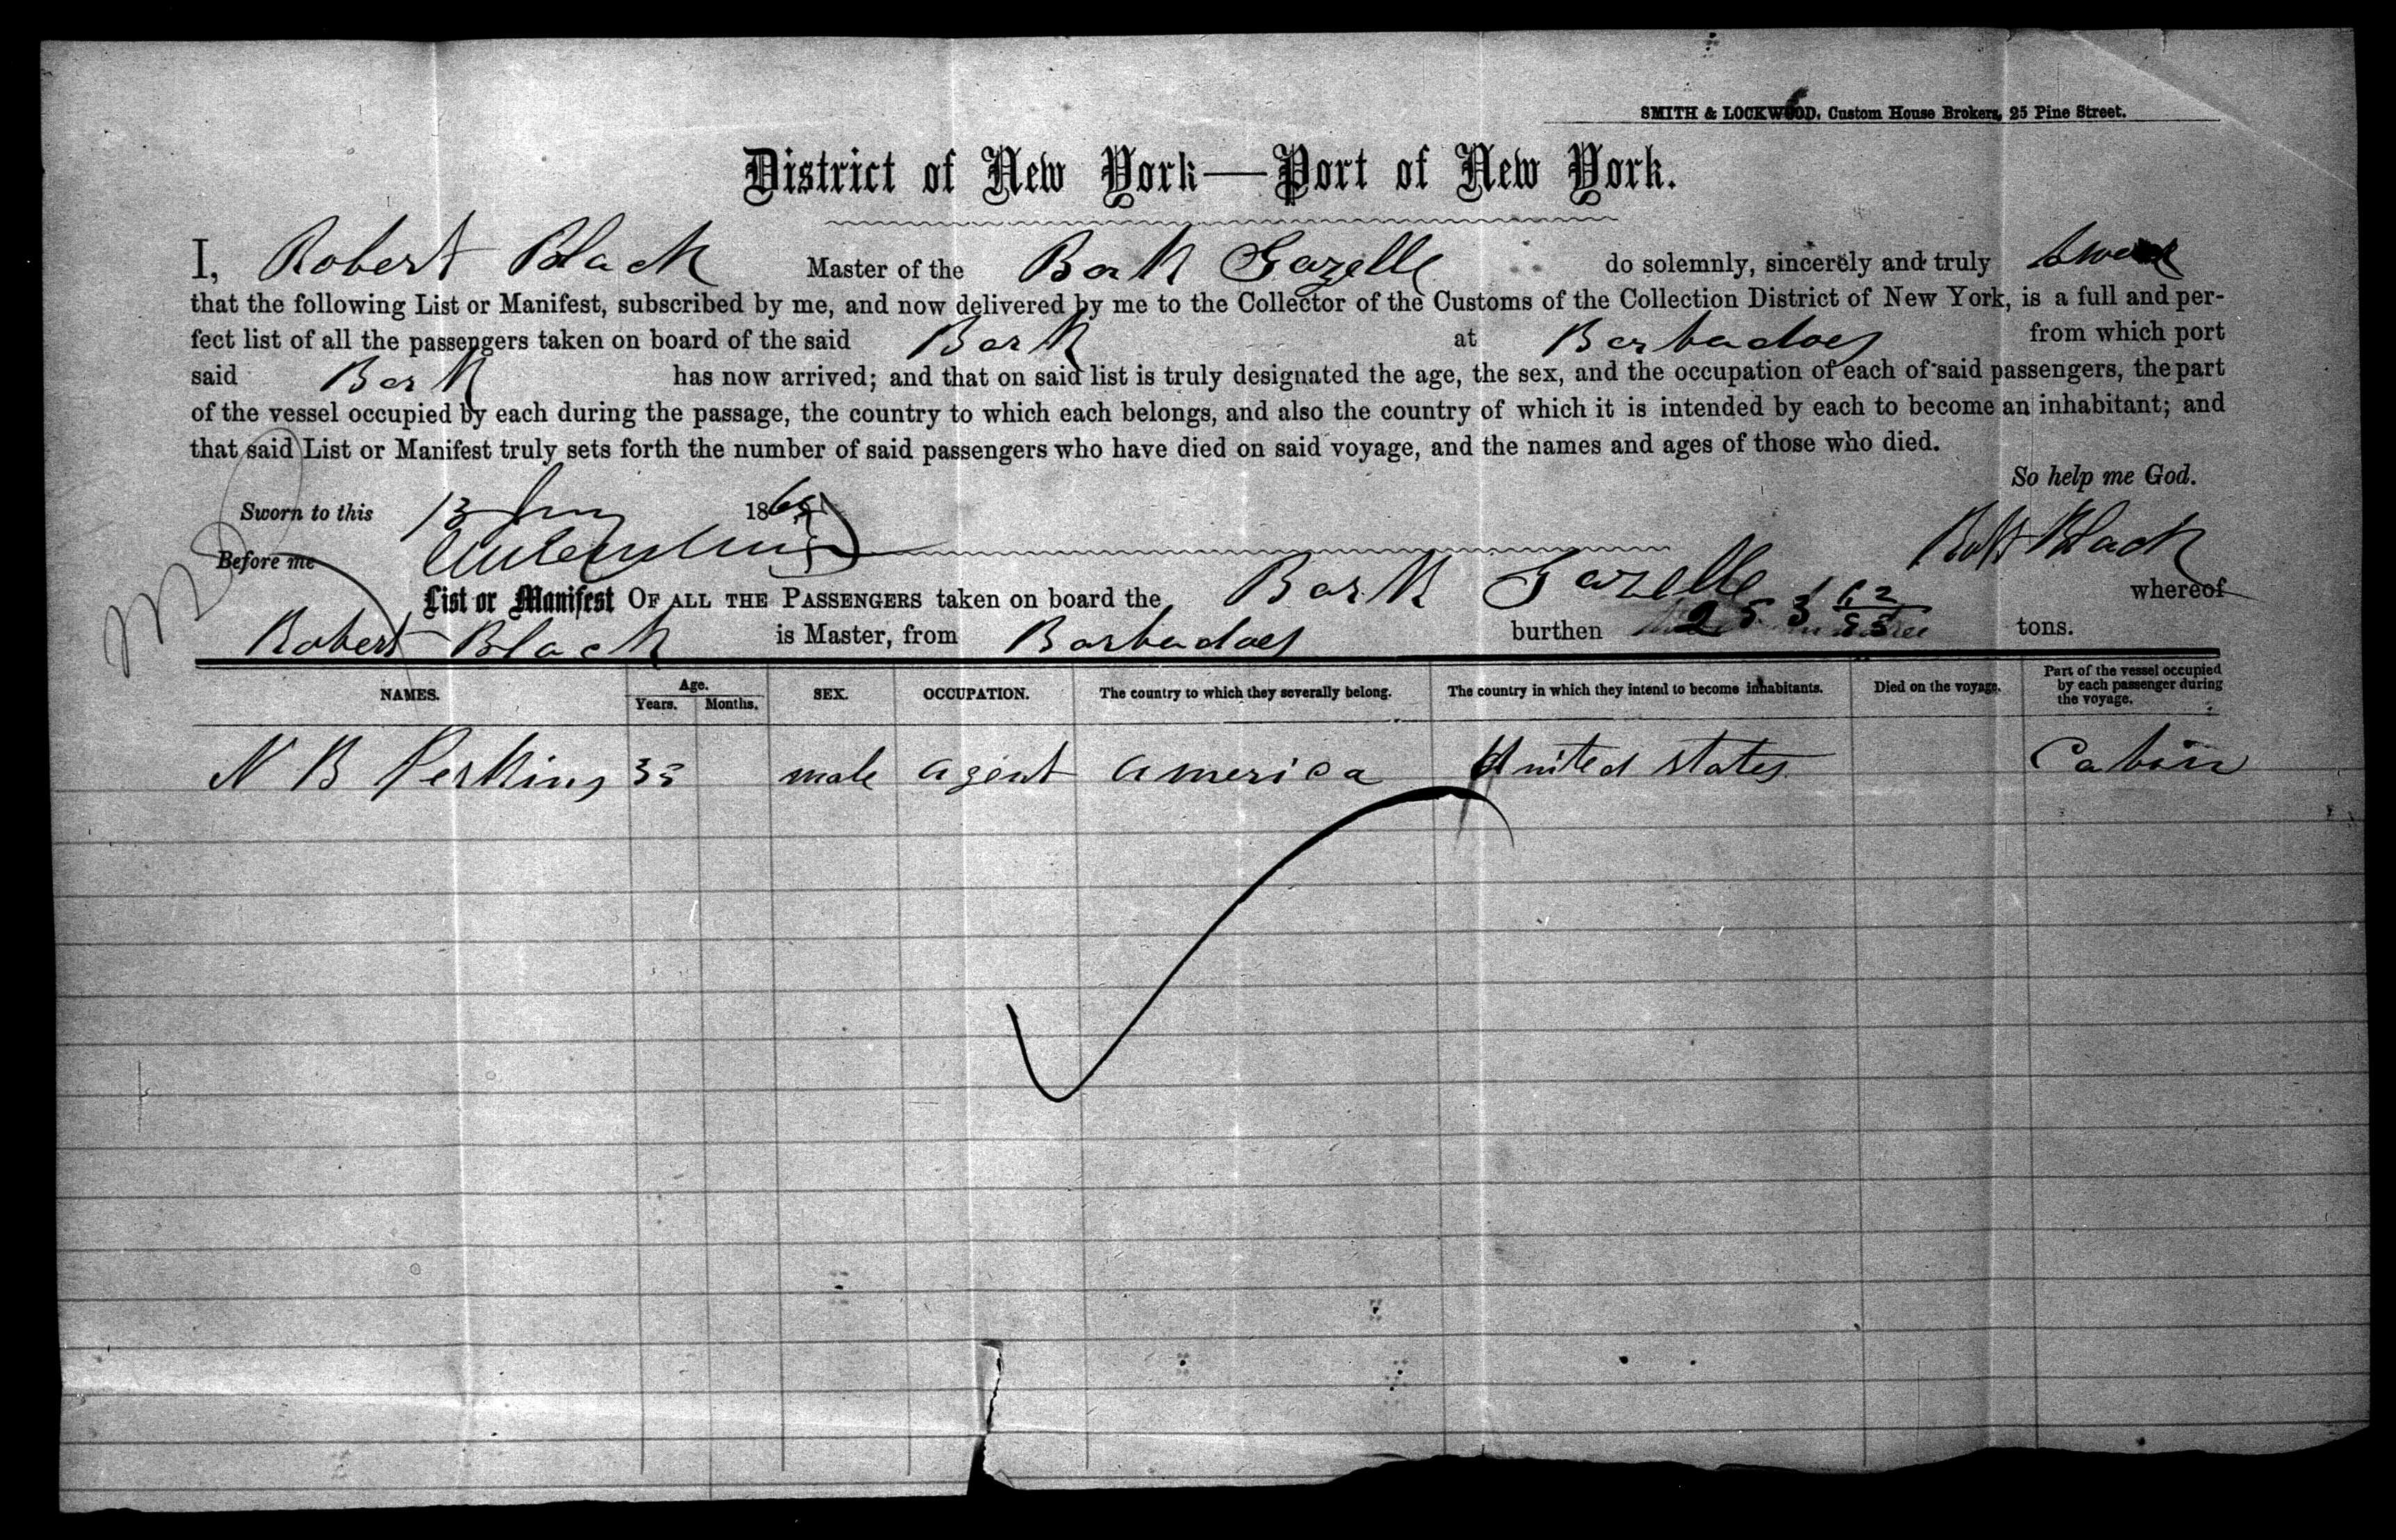 SMITH & LOCKWOOD, Custom House Brokers, 25 Pine Street.
District of New York—Port of New York.
I, Robert Black Master of the Bark Gazelle do solemnly, sincerely and truly swear
that the following List or Manifest, subscribed by me, and now delivered by me to the Collector of the Customs of the Collection District of New York, is a full and per-
fect list of all the passengers taken on board of the said Bark at Barbadoes from which port
said Bark has now arrived; and that on said list is truly designated the age, the sex, and the occupation of each of said passengers, the part
of the vessel occupied by each during the passage, the country to which each belongs, and also the country of which it is intended by each to become an inhabitant; and
that said List or Manifest truly sets forth the number of said passengers who have died on said voyage, and the names and ages of those who died.
So help me God.
Sworn to this 13 1865
Before me Robt Black
List or Manifest OF ALL THE PASSENGERS taken on board the Bark Gazelle whereof
Robert Black is Master, from Barbadoes burthen 253 tons.
NAMES. Age. Years. Months. SEX. OCCUPATION. The country to which they severally belong. The country in which they intend to become inhabitants. Died on the voyage. Part of the vessel occupied by each passenger during the voyage.
N B Perkins 35 male agent america United states Cabin